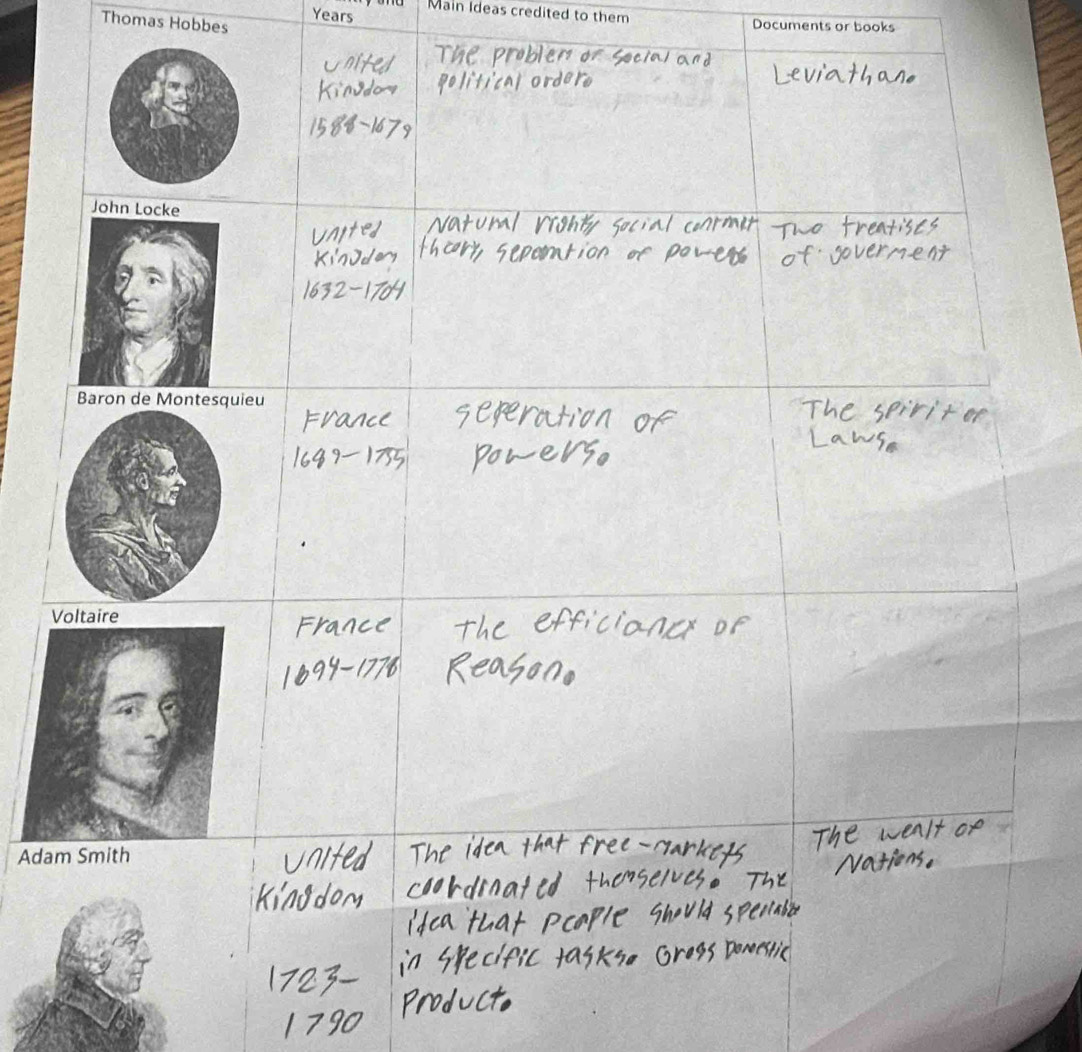 Years
Main Ideas credited to them
Documents or books
Thomas Hobbes
United
Kingdom
1588-1679
The problem of social and
political order.
Leviathan.
John Locke
United
Kingdom
1632-1704
Natural rights, social
theory, separation of powers
Two treatises
of goverment
Baron de Montesquieu
France
1689-1755
seperation of
powers.
The spirit of
Laws.
Voltaire
France
1694-1778
The efficiancy of
Reason.
Adam Smith
United
Kingdom
1723-
1790
The idea that free-markets
coordinated themselves. The
idea that people should
in specific tasks. Gross Domestic
Product.
The wealt of
Nations.